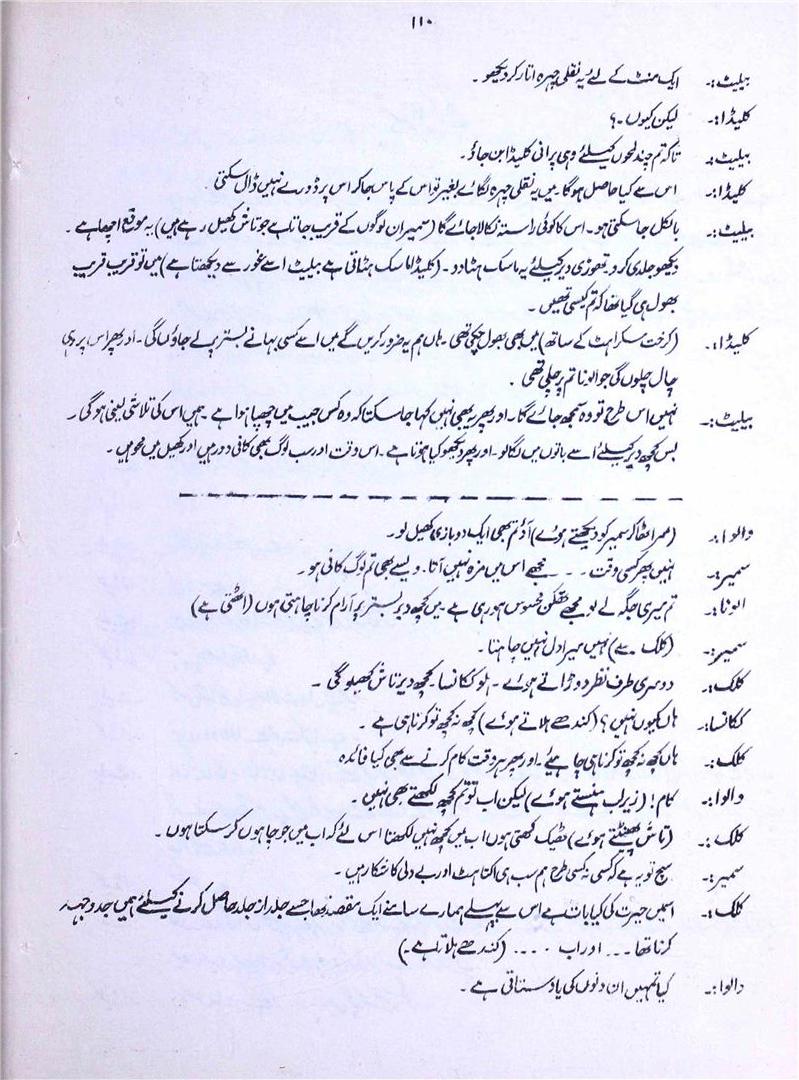 ۱۱۰
بیلیٹ:۔ ایک منٹ کے لئے یہ نقلی چہرہ اتار کر دیکھو ۔
کلیڈا:۔ لیکن کیوں ۔؟
بیلیٹ:۔ تاکہ تم چند لمحوں کیلئے وہی پرانی کلیڈا بن جاؤ ۔
کلیڈا:۔ اس سے کیا حاصل ہوگا۔ میں یہ نقلی چہرہ لگائے بغیر تو اس کے پاس جا کر اس پر ڈورے نہیں ڈال سکتی
بیلیٹ:۔ بالکل جا سکتی ہو۔ اس کا کوئی راستہ نکالا جائے گا (سمیر ان لوگوں کے قریب جاتا ہے جو تاش کھیل رہے ہیں) یہ موقع اچھا ہے ۔
دیکھو جلدی کرو۔ تھوڑی دیر کیلئے یہ ماسک ہٹا دو ۔ (کلیڈا ماسک ہٹاتی ہے بیلیٹ اسے غور سے دیکھتا ہے) میں تو قریب قریب
بھول ہی گیا تھا کہ تم کیسی تھیں ۔
کلیڈا:۔ (کرخت مسکراہٹ کے ساتھ) میں بھی بھول چکی تھی ۔ ہاں ہم یہ ضرور کریں گے میں اسے کسی بہانے بستر پہ لے جاؤں گی ۔ اور پھر اس پر وہی
چال چلوں گی جو الونا تم پر چلی تھی ۔
بیلیٹ:۔ نہیں اس طرح تو وہ سمجھ جائے گا ۔ اور پھر یہ بھی نہیں کہا جا سکتا کہ وہ کس جیب میں چھپا ہوا ہے ۔ ہمیں اس کی تلاشی لینی ہوگی ۔
بس کچھ دیر کیلئے اسے باتوں میں لگا لو ۔ اور پھر دیکھو کیا ہوتا ہے ۔ اس وقت اور سب لوگ بھی کافی دور ہیں اور کھیل میں محو ہیں ۔
والوا:۔ (سر اٹھا کر سمیر کو دیکھتے ہوئے) آؤ تم بھی ایک دو بازی کھیل لو ۔
سمیر:۔ نہیں پھر کسی وقت ۔ ۔ ۔ مجھے اس میں مزہ نہیں آتا ۔ ویسے بھی تم لوگ کافی ہو ۔
الونا:۔ تم میری جگہ لے لو مجھے تھکن محسوس ہو رہی ہے ۔ میں کچھ دیر بستر پر آرام کرنا چاہتی ہوں (اٹھتی ہے)
سمیر:۔ (کلک سے) نہیں میرا دل نہیں چاہتا ۔
کلک:۔ دوسری طرف نظر دوڑاتے ہوئے ۔ لو ککانسا ۔ کچھ دیر تاش کھیلو گی ۔
ککانسا:۔ ہاں کیوں نہیں؟ (کندھے ہلاتے ہوئے) کچھ نہ کچھ تو کرنا ہی ہے ۔
کلک:۔ ہاں کچھ نہ کچھ تو کرنا ہی چاہئیے ۔ اور پھر ہر وقت کام کرنے سے بھی کیا فائدہ
والوا:۔ کام! (زیر لب ہنستے ہوئے) لیکن اب تو تم کچھ لکھتے بھی نہیں ۔
کلک:۔ (تاش پھینٹتے ہوئے) ٹھیک کہتی ہوں اب میں کچھ نہیں لکھتا اس لئے کہ اب میں جو چاہوں کر سکتا ہوں ۔
سمیر:۔ سچ تو یہ ہے کہ کسی نہ کسی طرح ہم سب ہی اکتاہٹ اور بے دلی کا شکار ہیں ۔
کلک:۔ اسمیں حیرت کی کیا بات ہے اس سے پہلے ہمارے سامنے ایک مقصد تھا جسے جلد از جلد حاصل کرنے کیلئے ہمیں جدوجہد
کرنا تھا ۔ ۔ ۔ اور اب ۔ ۔ ۔ ۔ (کندھے ہلاتا ہے ۔)
والوا:۔ کیا تمہیں ان دنوں کی یاد ستاتی ہے ۔